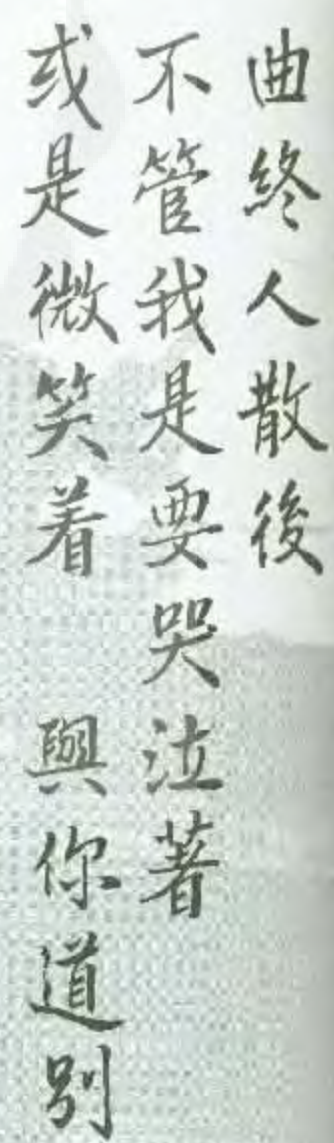 曲終人散後
不管我是要哭泣著
或是微笑着　與你道別